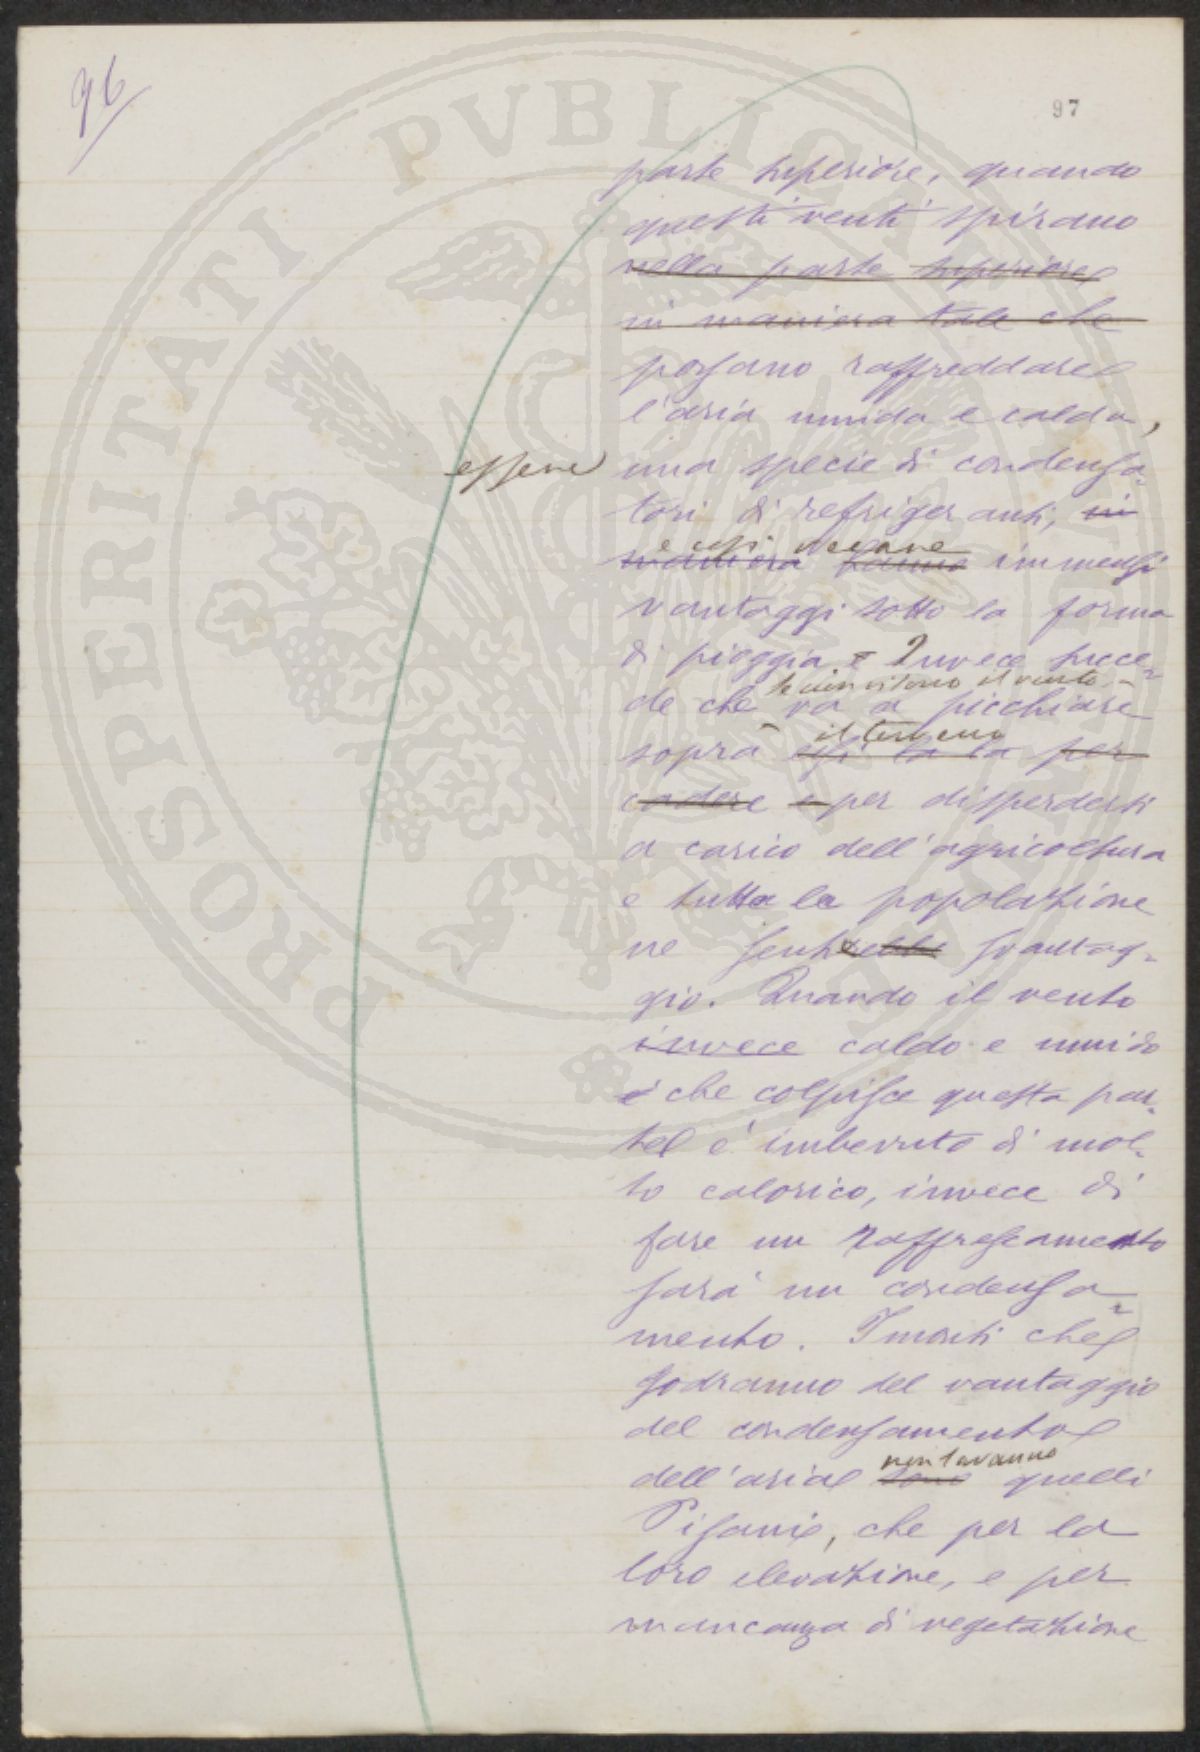 96
97
parte superiore, quando
questi venti spirano
nella parte superiore
in maniera tale che
possano raffreddare
l'aria umida e calda,
essere
una specie di condensa-
tori di refrigeranti, in
e così recare
maniera fanno immensi
vantaggi sotto la forma
di pioggia e Invece succe-
il vento
de che va a picchiare
il terreno
sopra essi la la per
cadere e per disperdersi
a carico dell'agricoltura
e tutta la popolazione
ne svantag-
gio. Quando il vento
invece caldo e umido
è che colpisce questa par-
te è imbevuto di mol-
to calorico, invece di
fare un raffrescamento
farà un condensa-
mento. I monti che
godranno del vantaggio
del condensamento
non saranno
dell'aria sono quelli
Pisani, che per la
loro elevazione, e per
mancanza di vegetazione
PROSPERITATI PVBLICAE